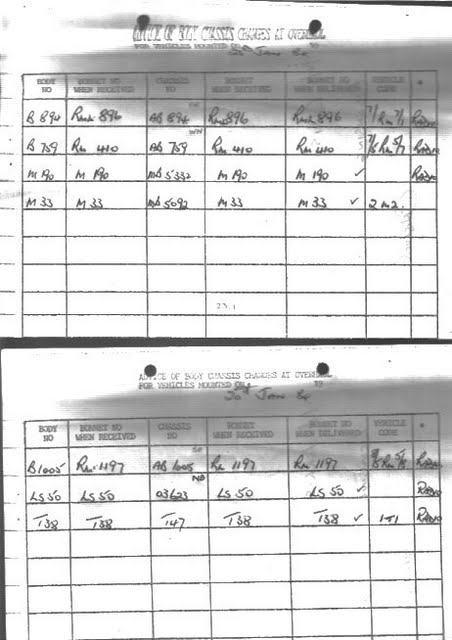 ADVICE OF BODY CHASSIS CHANGES AT OVERHAUL
FOR VEHICLES MOUNTED ON 19
30th Jan 84
BODY NO BONNET NO WHEN RECEIVED CHASSIS NO BONNET WHEN RECEIVED BONNET NO WHEN DELIVERED VEHICLE CODE *
B 894 RM 896 AB 894 RM 896 RM 896 RADIO
B 759 RM 410 AB 759 RM 410 RM 410 RADIO
M 190 M 190 MD 5332 M 190 M 190 ✓ RADIO
M 33 M 33 MD 5092 M 33 M 33 ✓ 2 M2.
23.1
ADVICE OF BODY CHASSIS CHANGES AT OVERHAUL
FOR VEHICLES MOUNTED ON 19
30th Jan 84
BODY NO BONNET NO WHEN RECEIVED CHASSIS NO BONNET WHEN RECEIVED BONNET NO WHEN DELIVERED VEHICLE CODE *
B1005 RM 1197 AB 1005 RM 1197 RM 1197 RADIO
LS 50 LS 50 03623 LS 50 LS 50 ✓ RADIO
T38 T38 T47 T38 T38 ✓ 1T1 RADIO